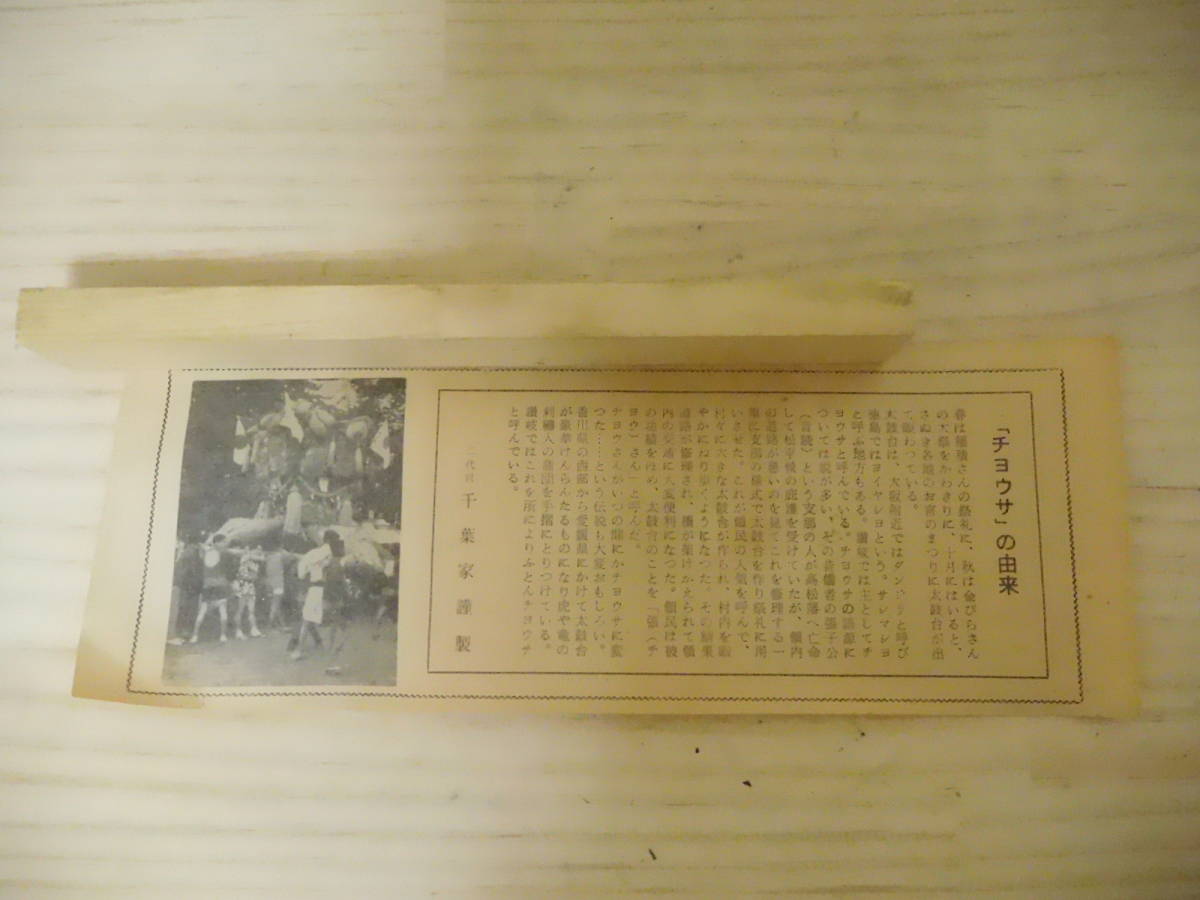 「チヨウサ」の由来
春は稲積さんの祭礼に、秋は金ぴらさん
の大祭をかわきりに、十月にはいると、
さぬき各地のお宮のまつりに太鼓台が出
て賑わつている。
太鼓台は、大阪附近ではダンジリと呼び
徳島ではヨイヤレヨという。サレマシヨ
と呼ぶ地方もある。讃岐では主としてチ
ヨウサと呼んでいる。チヨウサの語源に
ついては説が多い、その昔儒者の張子公
（言続）という支那の人が高松落へ亡命
して松平候の庇護を受けていたが、領内
の道路が悪いのを見てこれを修理する一
策に支那の様式で太鼓台を作り祭礼に用
いさせた。これが領民の人気を呼んで、
村々に大きな太鼓台が作られ、村内を賑
やかにねり歩くようになつた。その結果
道路が修理され、橋が架けかえられて領
内の交通に大変便利になつた。領民は彼
の功績をほめ、太鼓台のことを「張（チ
ヨウ）さん」と呼んだ。
チヨウさんがいつの間にかチヨウサに変
つた……という伝説も大変おもしろい。
香川県の西部から愛媛県にかけて太鼓台
が豪華けんらんたるものになり虎や竜の
刺繡入の蒲団を手摺にとりつけている。
讃岐ではこれを所によりふとんチヨウサ
と呼んでいる。
二代目 千葉家謹製